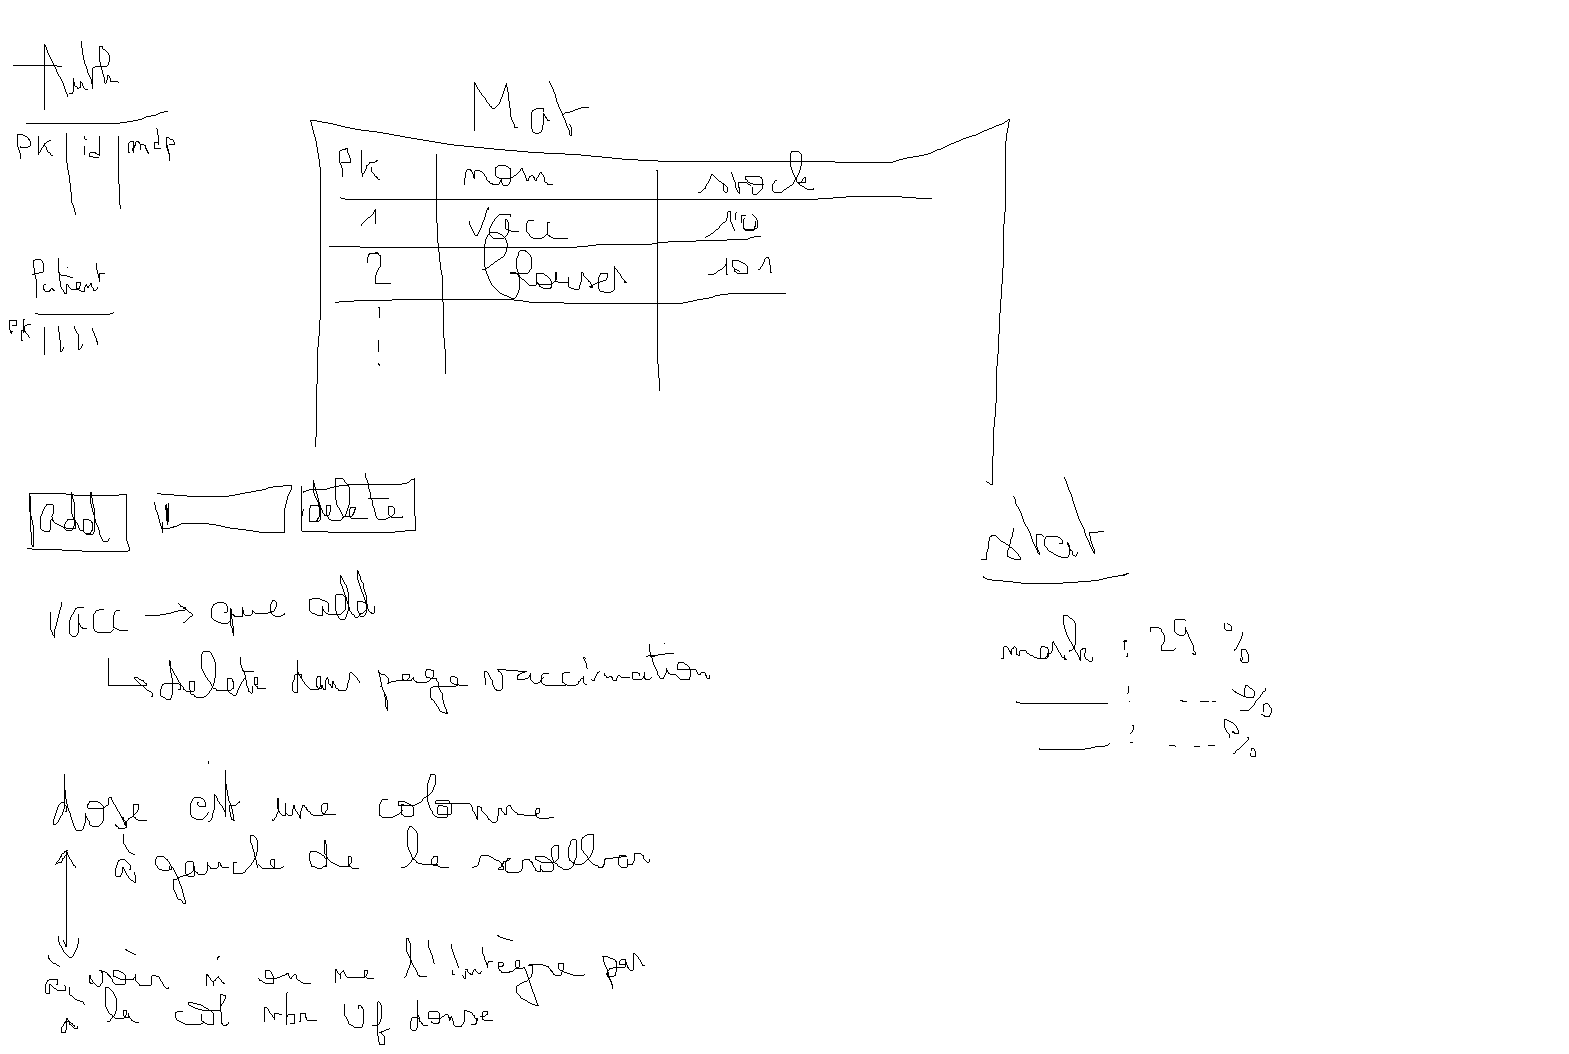 Auth
PK | id | mdp
Patient
PK
Mat
PK nom stock
1 vacc 10
2 101
add delete
vacc → que add
↳ delete dans page vaccination
stat
mask : 29 %
: --- %
: --- %
dose est une colonne
à gauche de la scrollbar
à voir si on ne l'intègre pas
à la col nbr Of donse